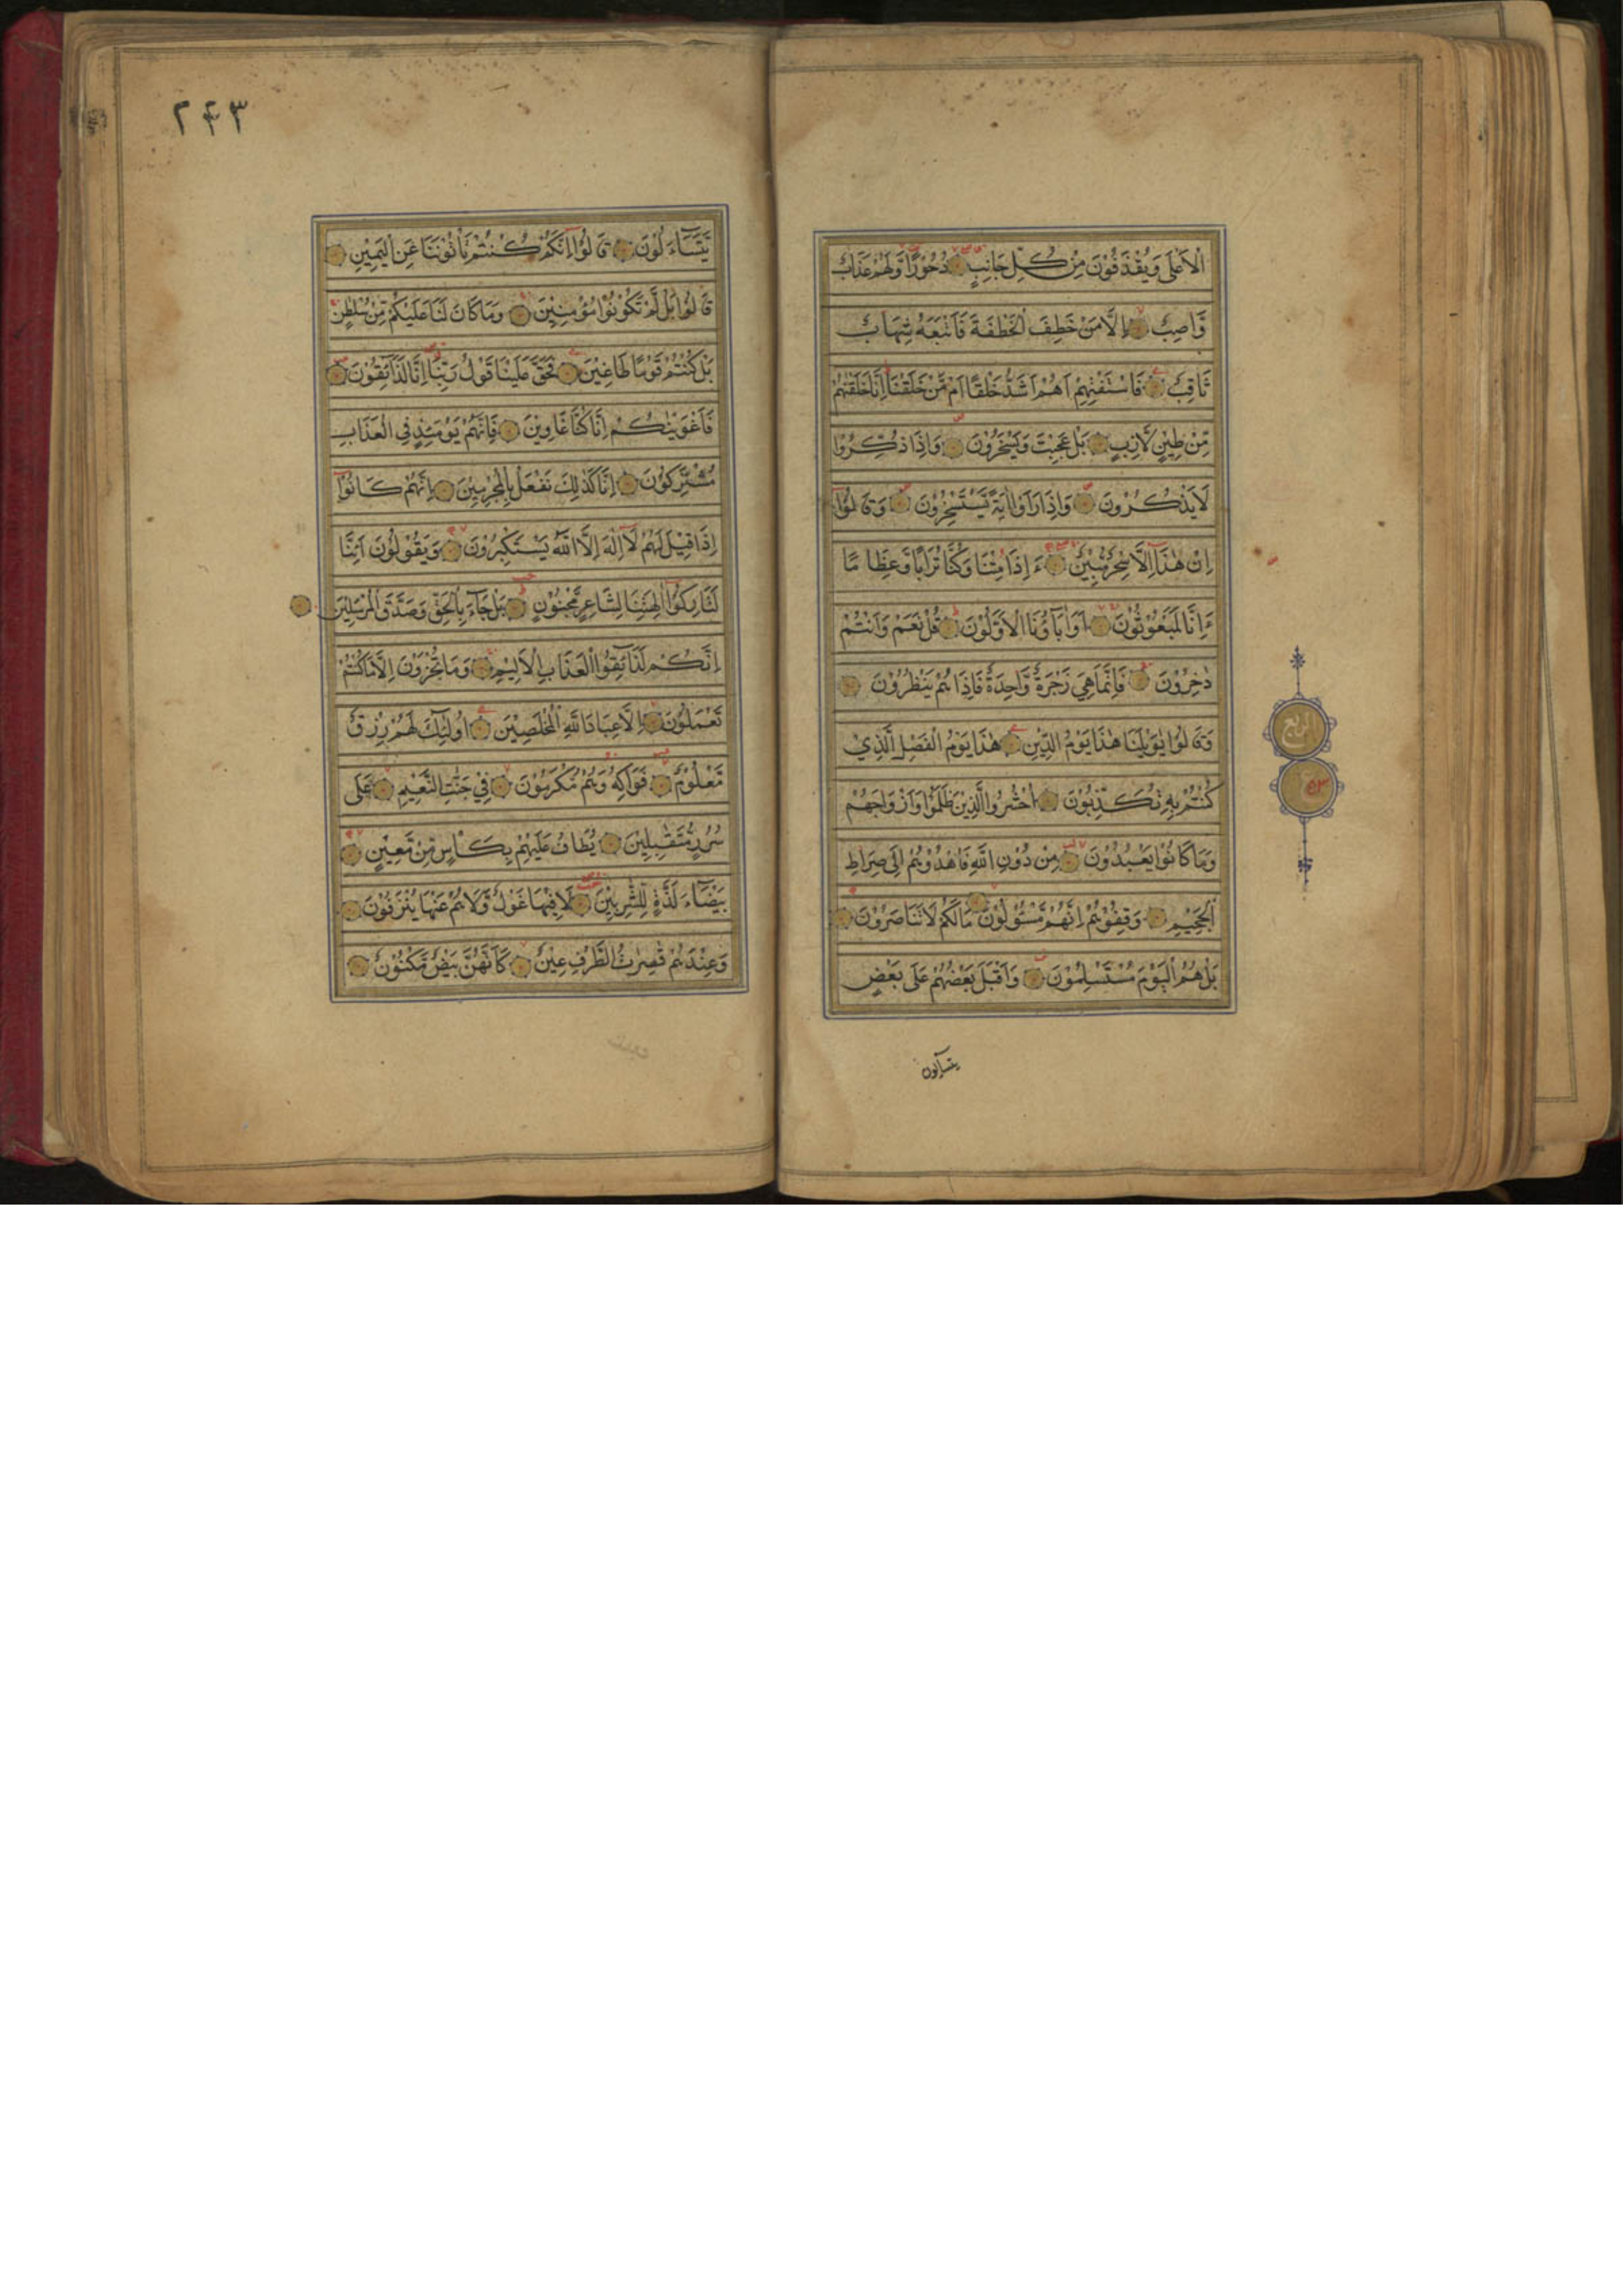 الْاَعْلٰى وَيُقْذَفُوْنَ مِنْ كُلِّ جَانِبٍ دُحُوْرًا وَّلَهُمْ عَذَابٌ
وَّاصِبٌ اِلَّا مَنْ خَطِفَ الْخَطْفَةَ فَاَتْبَعَهٗ شِهَابٌ
ثَاقِبٌ فَاسْتَفْتِهِمْ اَهُمْ اَشَدُّ خَلْقًا اَمْ مَّنْ خَلَقْنَا اِنَّا خَلَقْنٰهُمْ
مِّنْ طِيْنٍ لَّازِبٍ بَلْ عَجِبْتَ وَيَسْخَرُوْنَ وَاِذَا ذُكِّرُوْا
لَا يَذْكُرُوْنَ وَاِذَا رَاَوْا اٰيَةً يَّسْتَسْخِرُوْنَ وَقَالُوْٓا
اِنْ هٰذَآ اِلَّا سِحْرٌ مُّبِيْنٌ ءَاِذَا مِتْنَا وَكُنَّا تُرَابًا وَّعِظَامًا
ءَاِنَّا لَمَبْعُوْثُوْنَ اَوَاٰبَآؤُنَا الْاَوَّلُوْنَ قُلْ نَعَمْ وَاَنْتُمْ
دَاخِرُوْنَ فَاِنَّمَا هِيَ زَجْرَةٌ وَّاحِدَةٌ فَاِذَا هُمْ يَنْظُرُوْنَ
وَقَالُوْا يٰوَيْلَنَا هٰذَا يَوْمُ الدِّيْنِ هٰذَا يَوْمُ الْفَصْلِ الَّذِيْ
كُنْتُمْ بِهٖ تُكَذِّبُوْنَ اُحْشُرُوا الَّذِيْنَ ظَلَمُوْا وَاَزْوَاجَهُمْ
وَمَا كَانُوْا يَعْبُدُوْنَ مِنْ دُوْنِ اللّٰهِ فَاهْدُوْهُمْ اِلٰى صِرَاطِ
الْجَحِيْمِ وَقِفُوْهُمْ اِنَّهُمْ مَّسْئُوْلُوْنَ مَا لَكُمْ لَا تَنَاصَرُوْنَ
بَلْ هُمُ الْيَوْمَ مُسْتَسْلِمُوْنَ وَاَقْبَلَ بَعْضُهُمْ عَلٰى بَعْضٍ
يتسآءلون
الربع
٢٤٣
يَّتَسَآءَلُوْنَ قَالُوْٓا اِنَّكُمْ كُنْتُمْ تَاْتُوْنَنَا عَنِ الْيَمِيْنِ
قَالُوْا بَلْ لَّمْ تَكُوْنُوْا مُؤْمِنِيْنَ وَمَا كَانَ لَنَا عَلَيْكُمْ مِّنْ سُلْطٰنٍ
بَلْ كُنْتُمْ قَوْمًا طَاغِيْنَ فَحَقَّ عَلَيْنَا قَوْلُ رَبِّنَآ اِنَّا لَذَآئِقُوْنَ
فَاَغْوَيْنٰكُمْ اِنَّا كُنَّا غَاوِيْنَ فَاِنَّهُمْ يَوْمَئِذٍ فِي الْعَذَابِ
مُشْتَرِكُوْنَ اِنَّا كَذٰلِكَ نَفْعَلُ بِالْمُجْرِمِيْنَ اِنَّهُمْ كَانُوْٓا
اِذَا قِيْلَ لَهُمْ لَآ اِلٰهَ اِلَّا اللّٰهُ يَسْتَكْبِرُوْنَ وَيَقُوْلُوْنَ اَئِنَّا
لَتَارِكُوْٓا اٰلِهَتِنَا لِشَاعِرٍ مَّجْنُوْنٍ بَلْ جَآءَ بِالْحَقِّ وَصَدَّقَ الْمُرْسَلِيْنَ
اِنَّكُمْ لَذَآئِقُوا الْعَذَابِ الْاَلِيْمِ وَمَا تُجْزَوْنَ اِلَّا مَا كُنْتُمْ
تَعْمَلُوْنَ اِلَّا عِبَادَ اللّٰهِ الْمُخْلَصِيْنَ اُولٰٓئِكَ لَهُمْ رِزْقٌ
مَّعْلُوْمٌ فَوَاكِهُ وَهُمْ مُّكْرَمُوْنَ فِيْ جَنّٰتِ النَّعِيْمِ عَلٰى
سُرُرٍ مُّتَقٰبِلِيْنَ يُطَافُ عَلَيْهِمْ بِكَاْسٍ مِّنْ مَّعِيْنٍ
بَيْضَآءَ لَذَّةٍ لِّلشّٰرِبِيْنَ لَا فِيْهَا غَوْلٌ وَّلَا هُمْ عَنْهَا يُنْزَفُوْنَ
وَعِنْدَهُمْ قٰصِرٰتُ الطَّرْفِ عِيْنٌ كَاَنَّهُنَّ بَيْضٌ مَّكْنُوْنٌ